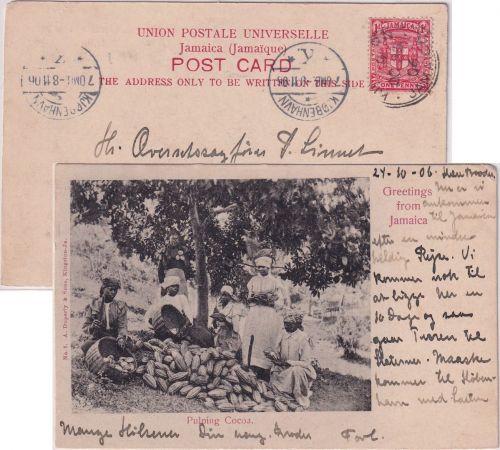 UNION POSTALE UNIVERSELLE
Jamaica (Jamaïque)
POST CARD
THE ADDRESS ONLY TO BE WRITTEN ON THIS SIDE
JAMAICA
ONE PENNY
KJØBENHAVN
7.OMB. 8.11.06
KJØBENHAVN
8.11.06
Hr. Oversetssagfører Linnet
Greetings
from
Jamaica
24-10-06.
er vi
ankommen
til Jamaica
efter en mindre
heldig Rejse. Vi
kommer nok til
at ligge her en
10 Dage og saa
gaar Turen til
Staterne. Maaske
kommer til Køben-
havn med
No. 1. A. Duperly & Sons, Kingston-Ja.
Pulping Cocoa.
Mange Hilsener Din Broder